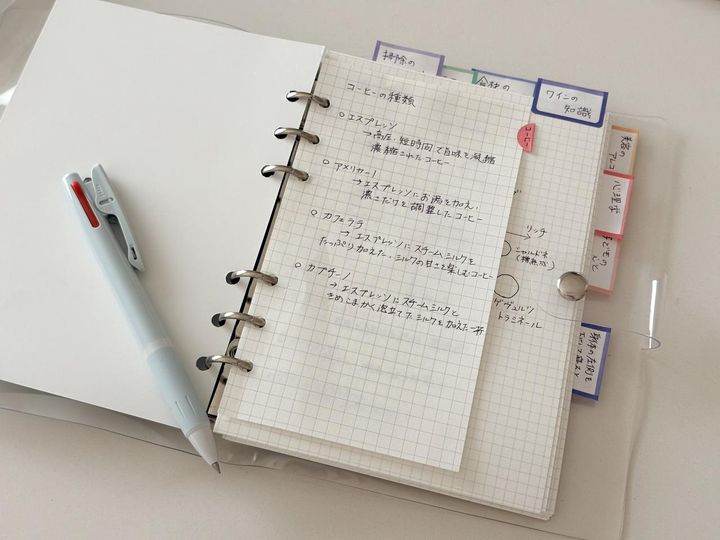 コーヒーの種類
○ エスプレッソ
→ 高圧・短時間で旨味を凝縮
濃縮されたコーヒー
○ アメリカーノ
→ エスプレッソにお湯を加え、
濃さだけを調整したコーヒー
○ カフェラテ
→ エスプレッソにスチームミルクを
たっぷり加えた、ミルクの甘さを楽しむコーヒー
○ カプチーノ
→ エスプレッソにスチームミルクと
きめこまかく泡立てたミルクを加えた一杯
コーヒー
リッチ
ゲヴュルツ
トラミネール
掃除の
ワインの
知識
美容の
アレコ
心理学
子どもの
こと
身体の左側を